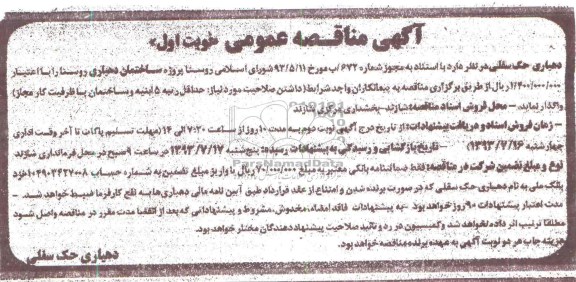 آگهی مناقصه عمومی «نوبت اول»
دهیاری حک سفلی در نظر دارد با استناد به مجوز شماره ۶۷۲/ب مورخ ۹۳/۵/۱۱ شورای اسلامی روستا پروژه ساختمان دهیاری روستا را با اعتبار
۱/۴۰۰/۰۰۰/۰۰۰ ریال از طریق برگزاری مناقصه به پیمانکاران واجد شرایط (داشتن صلاحیت مورد نیاز: حداقل رتبه ۵ ابنیه و ساختمان با ظرفیت کار مجاز)
واگذار نماید. - محل فروش اسناد مناقصه: شازند- بخشداری مرکزی شازند
- زمان فروش اسناد و دریافت پیشنهادات: از تاریخ درج آگهی نوبت دوم به مدت ۱۰ روز از ساعت ۷:۳۰ الی ۱۴ (مهلت تسلیم پاکات تا آخر وقت اداری
چهارشنبه ۱۳۹۳/۷/۱۶) - تاریخ بازگشایی و رسیدگی به پیشنهادات رسیده: پنج شنبه ۱۳۹۳/۷/۱۷ در ساعت ۹ صبح در محل فرمانداری شازند
نوع و مبلغ تضمین شرکت در مناقصه: فقط ضمانتنامه بانکی معتبر به مبلغ ۷۰/۰۰۰/۰۰۰ ریال یا واریز مبلغ تضمین به شماره حساب نزد
بانک ملی به نام دهیاری حک سفلی که در صورت برنده شدن و امتناع از عقد قرارداد طبق آیین نامه مالی دهیاری ها به نفع کارفرما ضبط خواهد شد. -
مدت اعتبار پیشنهادات ۹۰ روز خواهد بود - به پیشنهادات فاقد امضاء، مخدوش، مشروط و پیشنهاداتی که بعد از انقضا مدت مقرر در مناقصه واصل شود
مطلقا ترتیب اثر داده نخواهد شد و کمیسیون در رد و تائید صلاحیت پیشنهاد دهندگان مختار خواهد بود.
هزینه چاپ هر دو نوبت آگهی به عهده برنده مناقصه خواهد بود.
دهیاری حک سفلی
ParsNamadData